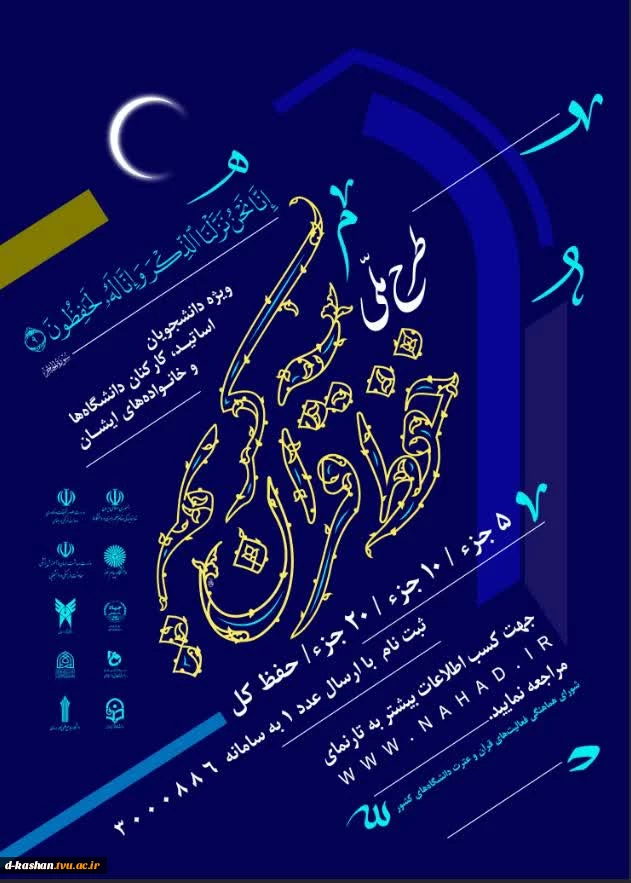 إِنَّا نَحْنُ نَزَّلْنَا ٱلذِّكْرَ وَإِنَّا لَهُ لَحَٰفِظُونَ ٩
طرح ملّی
حفظ قرآن کریم
ویژه دانشجویان
اساتید، کارکنان دانشگاه‌ها
و خانواده‌های ایشان
۵ جزء / ۱۰ جزء / ۲۰ جزء / حفظ کل
ثبت نام با ارسال عدد ۱ به سامانه ۳۰۰۰۸۸۶
جهت کسب اطلاعات بیشتر به تارنمای
WWW.NAHAD.IR
مراجعه نمایید.
شورای هماهنگی فعالیت‌های قرآن و عترت دانشگاه‌های کشور
d-kashan.tvu.ac.ir